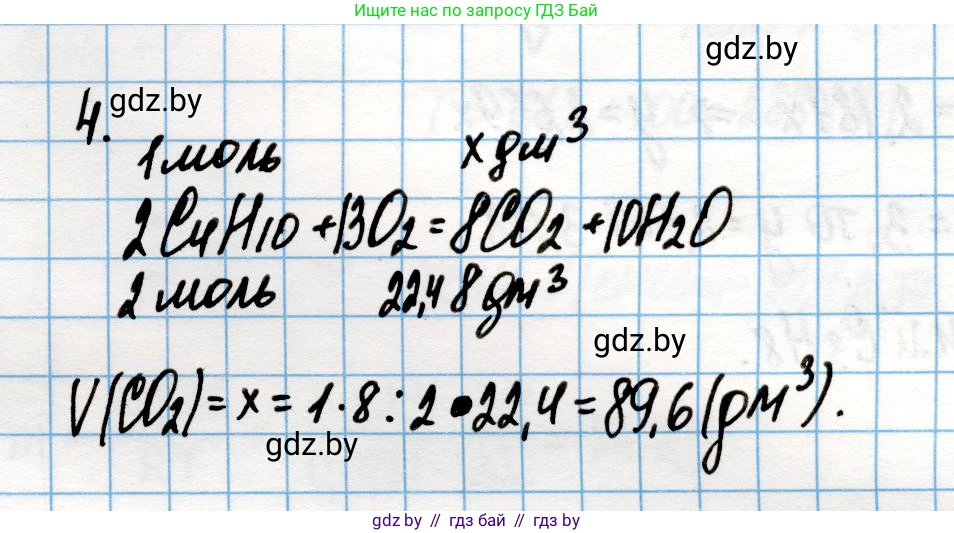 Ищите нас по запросу ГДЗ Бай
gdz.by
4. gdz.by
1 моль x дм³
2C₄H₁₀ + 13O₂ = 8CO₂ + 10H₂O
2 моль 22,4 8 дм³
gdz.by
V(CO₂) = x = 1 · 8 : 2 • 22,4 = 89,6 (дм³).
gdz.by
gdz.by // гдз бай // gdz.by